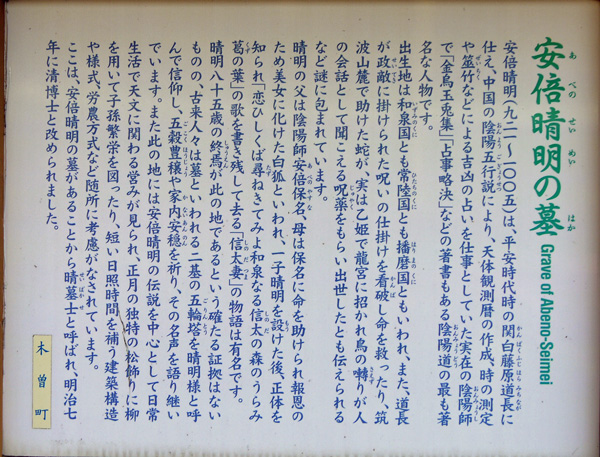 安倍晴明の墓
Grave of Abeno-Seimei
安倍晴明（九二一～一〇〇五）は、平安時代時の関白藤原道長に
仕え、中国の陰陽五行説により、天体観測暦の作成、時の測定
や筮竹などによる吉凶の占いを仕事としていた実在の陰陽師
で「金烏玉兎集」「占事略決」などの著書もある陰陽道の最も著
名な人物です。
出生地は和泉国とも常陸国とも播磨国ともいわれ、また、道長
が政敵に掛けられた呪いの仕掛けを看破し命を救ったり、筑
波山麓で助けた蛇が、実は乙姫で龍宮に招かれ鳥の囀りが人
の会話として聞こえる呪薬をもらい出世したとも伝えられる
など謎に包まれています。
晴明の父は陰陽師安倍保名、母は保名に命を助けられ報恩の
ため美女に化けた白狐といわれ、一子晴明を設けた後、正体を
知られ「恋ひしくば尋ねきてみよ和泉なる信太の森のうらみ
葛の葉」の歌を書き残して去る「信太妻」の物語は有名です。
晴明八十五歳の終焉が此の地であるという確たる証拠はない
ものの、古来人々は墓といわれる二基の五輪塔を晴明様と呼
んで信仰し、五穀豊穣や家内安穏を祈り、その名声を語り継い
でいます。また此の地には安倍晴明の伝説を中心として日常
生活で天文に関わる営みが見られ、正月の独特の松飾りに柳
を用いて子孫繁栄を図ったり、短い日照時間を補う建築構造
や様式、労農方式など随所に考慮がなされています。
ここは、安倍晴明の墓があることから晴墓士と呼ばれ、明治七
年に清博士と改められました。
木曽町